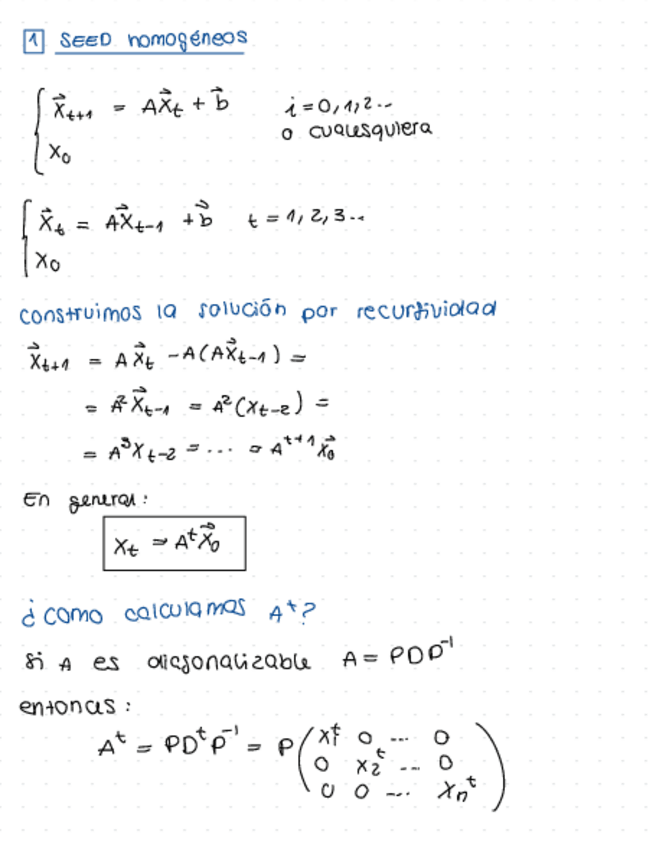 1 SEED homogéneos
x⃗t+1 = Ax⃗t + b⃗ i=0,1,2..
x0 o cualesquiera
x⃗t = Ax⃗t-1 + b⃗ t=1,2,3..
x0
construimos la solución por recursividad
x⃗t+1 = Ax⃗t - A(Ax⃗t-1) =
= A²x⃗t-1 = A²(xt-2) =
= A³xt-2 = ... = A^t+1 x⃗0
En general:
xt = A^t x⃗0
¿como calculamos A^t?
si A es diagonalizable A = PDP^-1
entonces:
A^t = PD^tP^-1 = P ( x1^t 0 ... 0
0 x2^t ... 0
0 0 ... xn^t )